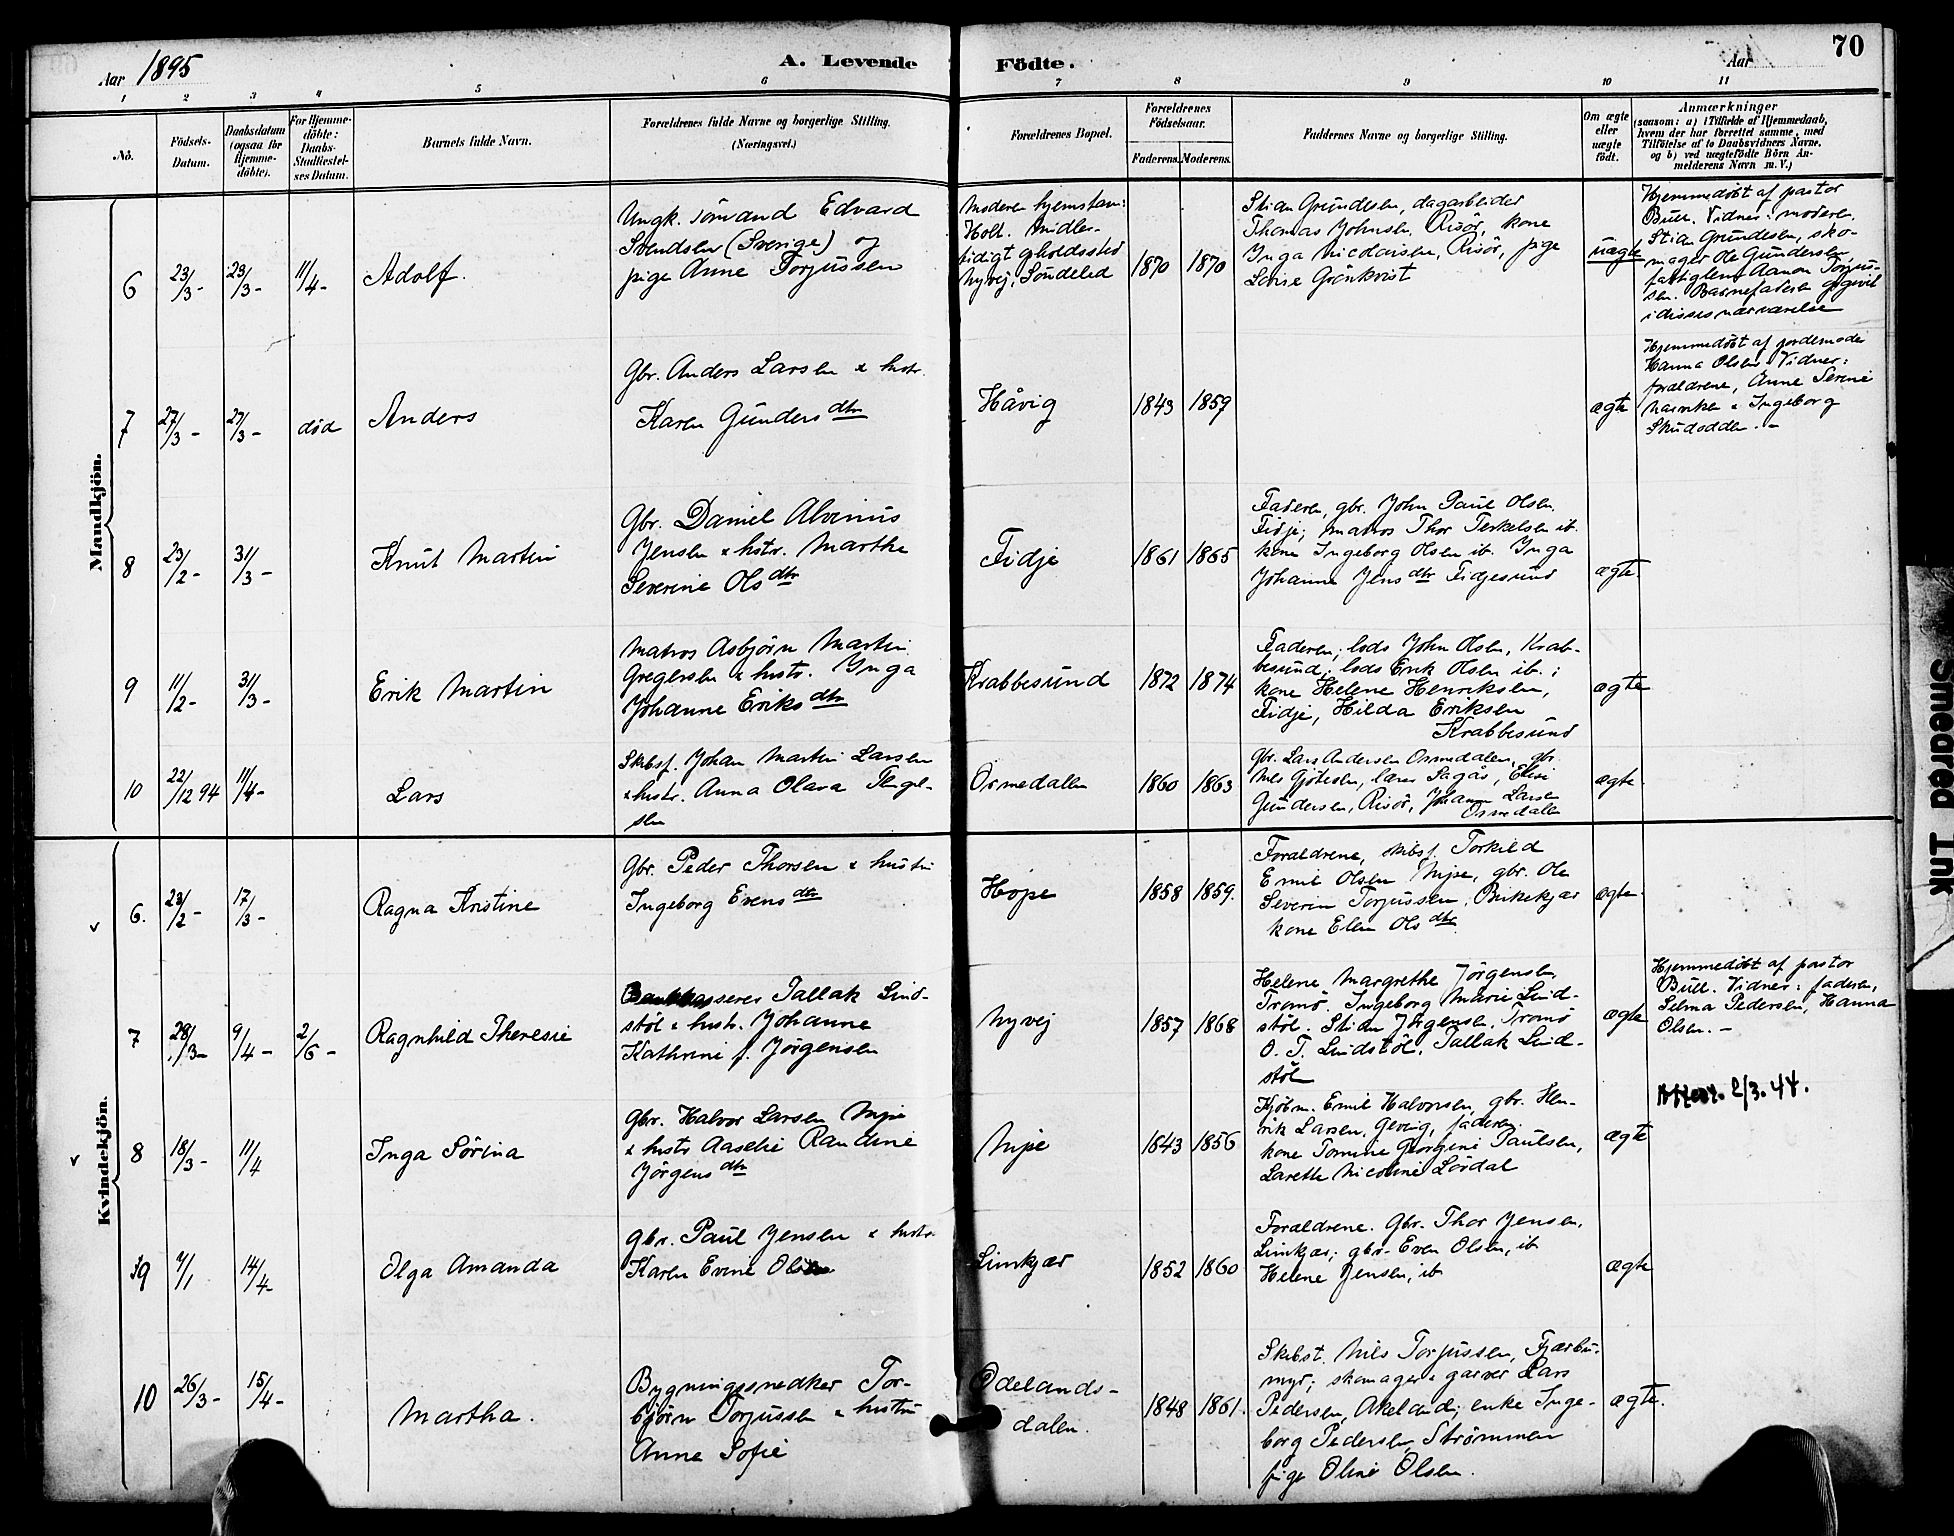 Aar 1895
A. Levende Födte.
Aar
70
1 2 3 4 5 6 7 8 9 10 11
No.
Födsels-
Datum.
Daabsdatum
(ogsaa for
Hjemme-
döbte).
For Hjemme-
döbte:
Daabs-
Stadfæstel-
ses Datum.
Barnets fulde Navn.
Forældrenes fulde Navne og borgerlige Stilling.
(Næringsvei.)
Forældrenes Bopæl.
Forældrenes
Födselsaar.
Faderens. Moderens.
Faddernes Navne og borgerlige Stilling.
Om ægte
eller
uægte
födt.
Anmærkninger
(saasom: a) i Tilfælde af Hjemmedaab,
hvem der har forrettet samme, med
Tilföielse af to Daabsvidners Navne,
og b) ved uægtefödte Börn An-
melderens Navn m. V.)
Mandkjön.
6
23/3 -
23/3 -
11/4 -
Adolf.
Ungk. sømand Edvard
Svendsen (Sverige) og
pige Anne Torjussen
Moderen hjemstavn:
Holt. midler-
tidigt opholdssted
Nyvej, Søndeled
1870
1870
Stian Gundersen, dagarbeider
Thomas Johnsen, Risör, kone
Inga Nicolaisen, Risör, pige
Lovise Grönkvist
uægte
Hjemmedøbt af pastor
Bull. Vidner: moderen,
Stian Gundersen, sko-
mager Ole Gundersen,
fattiglem Aanon Torjus-
sen. Barnefaderen opgivet
i disses nærværelse
7
27/3 -
27/3 -
død
Anders
Gbr. Anders Larsen & hustr.
Karen Gundersdtr
Håvig
1843
1859
ægte
Hjemmedøbt af jordemoder
Hanna Olsen. Vidner:
forældrene, Anne Serine
& Ingeborg
Skudodden. -
8
23/2 -
31/3 -
Knut Martin
Gbr. Daniel Alvinus
Jensen & hstr. Marthe
Severine Olsdtr
Fidje
1861
1865
Faderen, gbr. John Paul Olsen
Fidje; matros Thor Terkelsen ib.
kone Ingeborg Olsen ib. Inga
Johanne Jensdtr Fidjesund
ægte.
9
11/2 -
31/3 -
Erik Martin
Matros Asbjørn Martin
Gregersen & hustr. Inga
Johanne Eriksdtr
Krabbesund
1872
1874
Faderen; lods John Olsen, Krab-
besund; lods Erik Olsen ib.;
kone Helene Henriksen,
Fidje, Hilda Eriksen
Krabbesund
ægte
10
22/12 94
11/4 -
Lars
Skibsf. Johan Martin Larsen
& hustr. Anna Olava Tengel-
sen
Ormedalen
1860
1863
Gbr. Lars Andersen Ormedalen, gbr.
Nils Gjötesen, lærer Sagås, Elin
Gundersen, Risör, Johanne Larsen
Ormedalen
ægte
Kvindekjön.
6.
23/2 -
17/3 -
Ragna Kristine
Gbr. Peder Thorsen & hustru
Ingeborg Evensdtr
Hope
1858
1859.
Forældrene, skibsf. Torkild
Emil Olsen Nipe, gbr. Ole
Severin Torjussen, Birkekjær
kone Elen Olsdtr
ægte
7
28/3 -
9/4 -
2/6 -
Ragnhild Theresie
Bankkasserer Tallak Lind-
støl & hustr. Johanne
Kathrine f. Jørgensen
Nyvej
1857
1868
Helene Margrethe Jörgensen,
Tromö. Ingeborg Marie Lind-
støl. Stian Jörgensen, Tromö
O. T. Lindstöl. Tallak Lind-
støl
ægte
Hjemmedöbt af pastor
Bull. Vidner: faderen,
Selma Pedersen, Hanna
Olsen. -
8
18/3 -
11/4
Inga Sörina
Gbr. Halvor Larsen Nipe
& hustr Aaselie Randine
Jörgensdtr
Nipe
1843
1856
Kjöbm. Emil Halvorsen, gbr. Hen-
rik Larsen, Gjeving, faderen.
kone Tomine Georgine Paulsen,
Larette Nicoline Lördal
ægte
Attest. 2/3.44.
9
4/1
14/4 -
Olga Amanda
gbr. Paul Jensen & hustr.
Karen Evine
Limkjær
1852
1860
Forældrene. Gbr. Thor Jensen,
Limkjær; gbr. Even Olsen, ib
Helene Jensen, ib
ægte
10
26/3 -
15/4 -
Martha.
Bygningssnedker Tor-
björn Torjussen & hustru
Anne Sofie
Ödelands-
dalen.
1848
1861.
Skibst. Nils Torjussen, Fjærbu-
myr; skomager & garver Lars
Pedersen, Akeland; enke Inge-
borg Pedersen, Strömmen
pige Oline Olsen.
ægte.
Smeared Ink